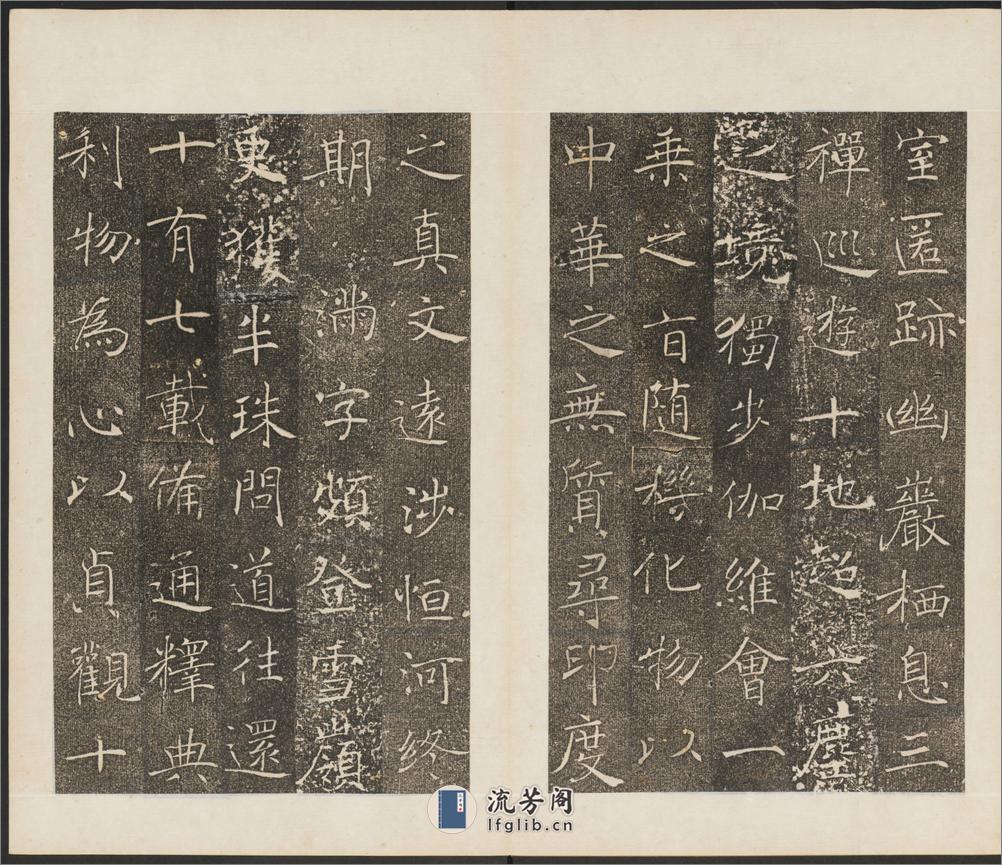 室匿跡幽巖栖息三
禪巡遊十地超六塵
之境獨步伽維會一
乘之旨随機化物以
中華之無質尋印度
之真文遠涉恒河終
期滿字頻登雪嶺
更獲半珠問道往還
十有七載備通釋典
利物為心以貞觀十
流芳阁
lfglib.cn